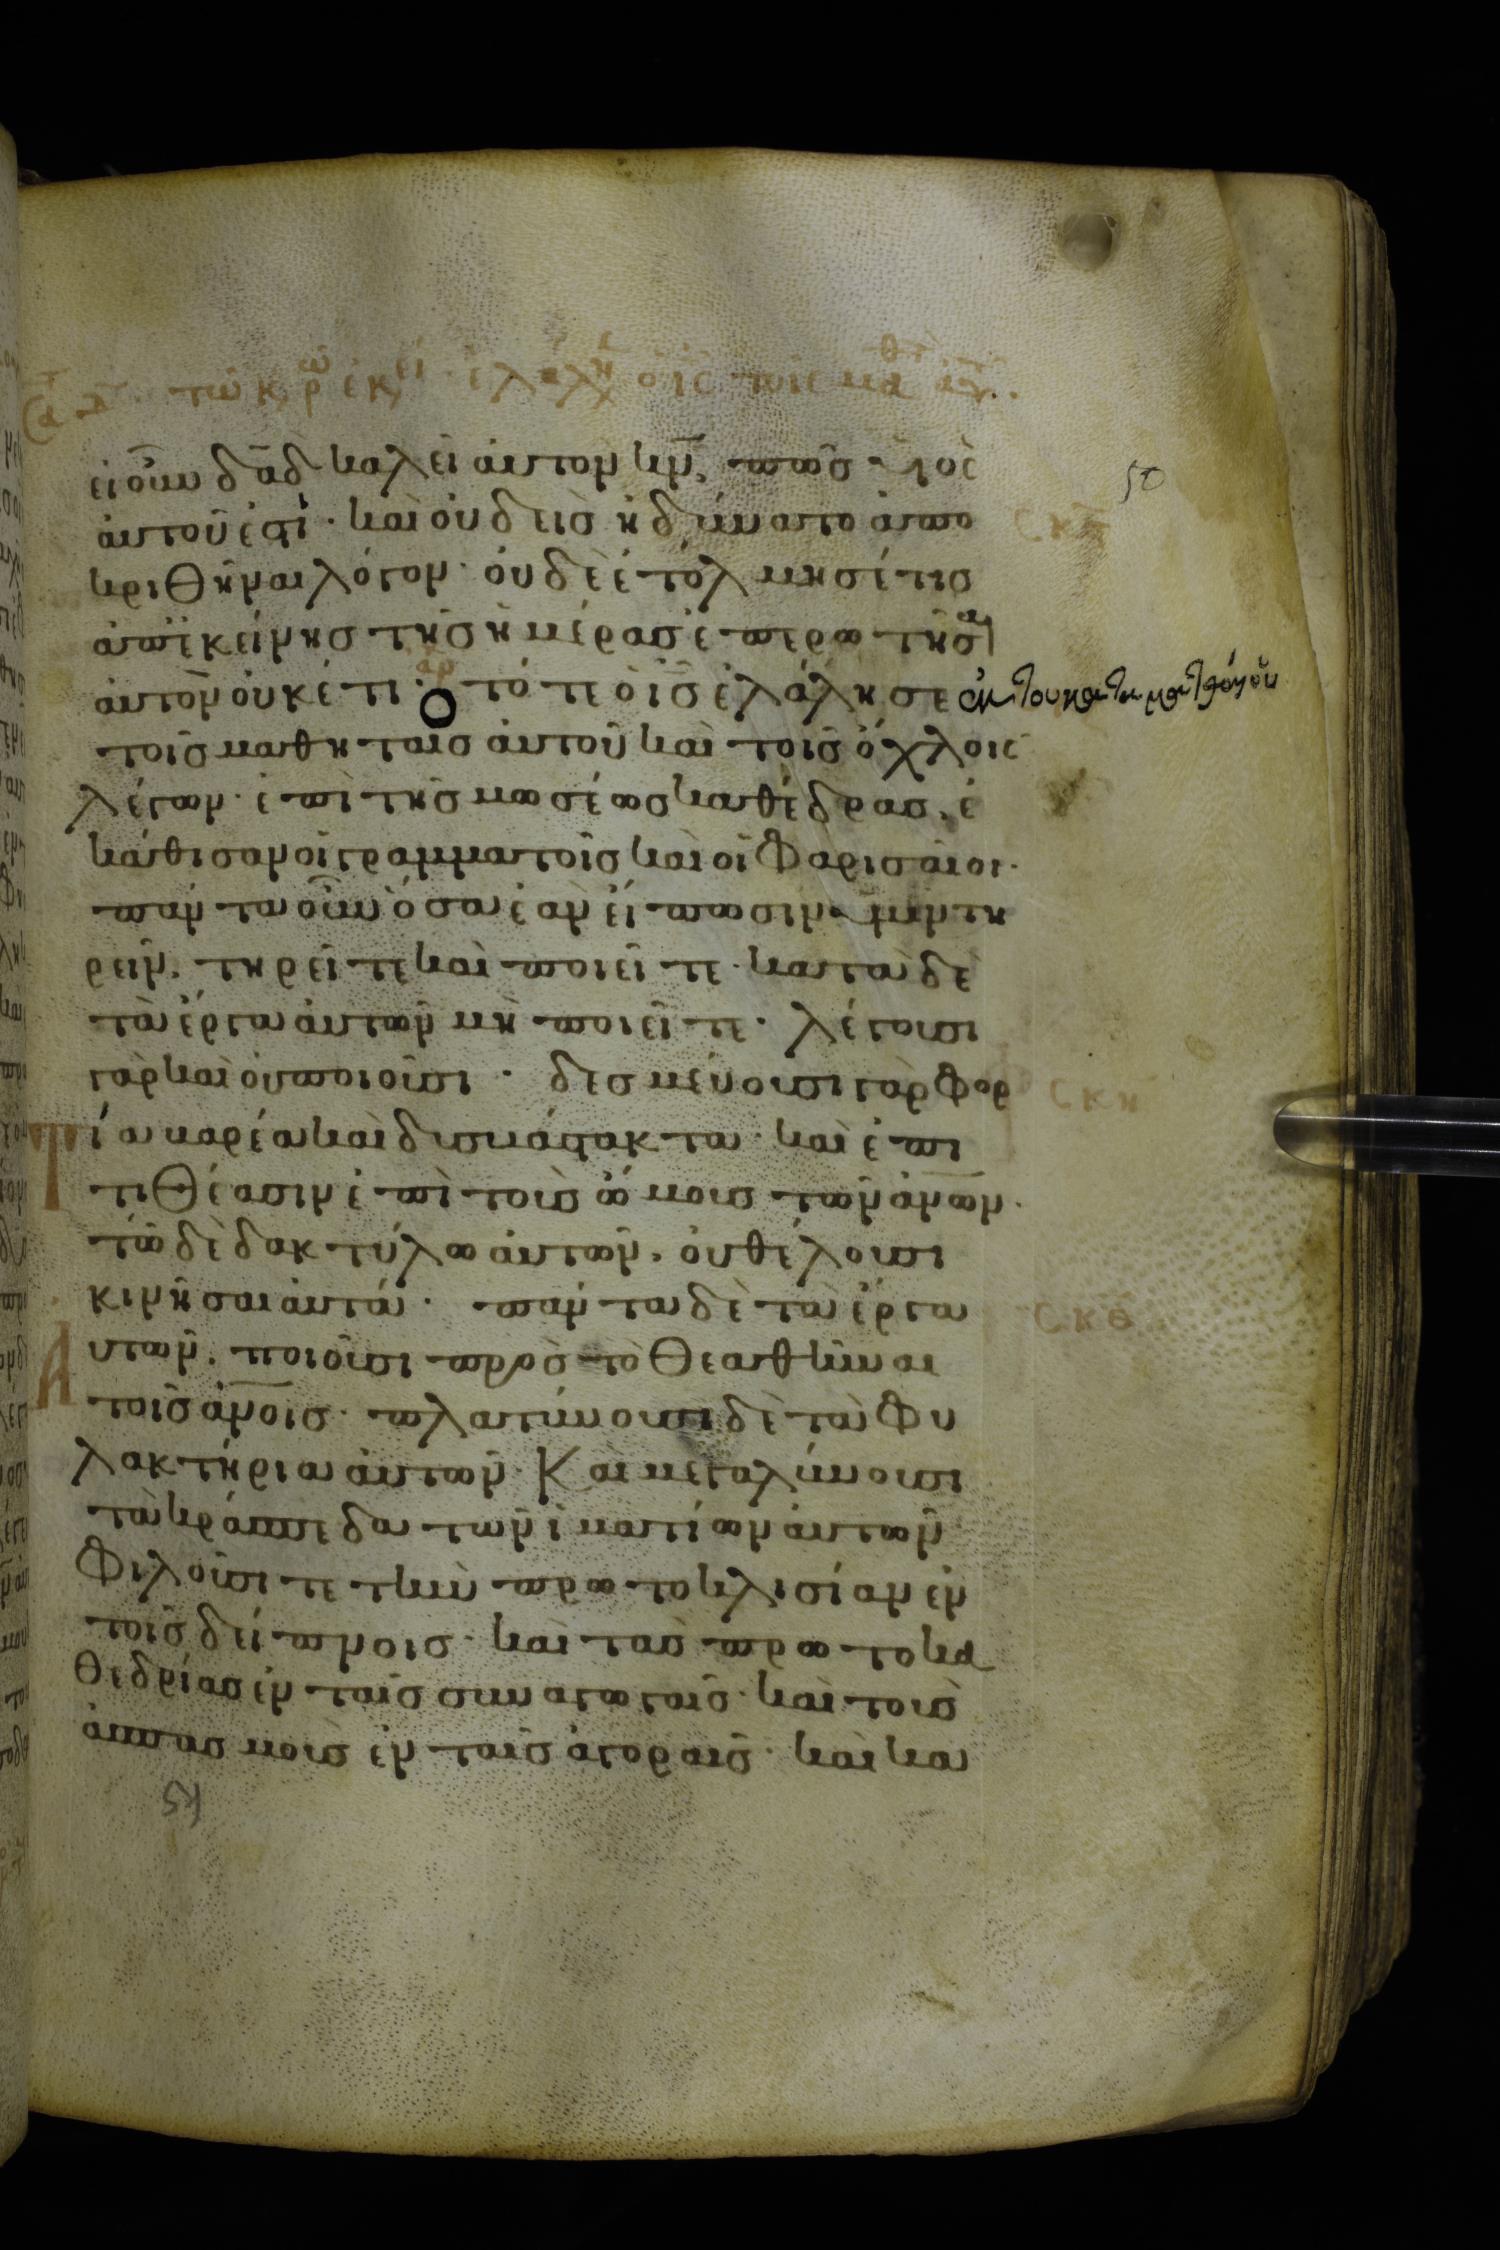 τω κρω εκει ελαλη ο ις τοις μαθ αυτ
εἰ οὖν δᾱδ καλεῖ αὐτον κν̄, πῶς υἱὸς
50
αὐτοῦ ἐστί· καὶ οὐδεὶς ἠδύνατο ἀπο
σκζ
κριθῆναι λόγον· οὐδὲ ἐτόλμησέ τις
ἀπ ἐκείνης τῆς ἡμέρας ἐπερωτῆσαι
αὐτὸν οὐκέτι· Ὁ τότε ὁ ις̄ ἐλάλησε
αρ
ἐκ του κατα ματθαίου
τοῖς μαθηταῖς αὐτοῦ καὶ τοῖς ὄχλοις
λέγων· ἐπὶ τῆς μωσέως καθέδρας, ἐ
κάθισαν οἱ γραμματοῖς καὶ οἱ Φαρισαῖοι·
πάντα οὖν ὅσα ἐὰν εἴπωσιν ὑμῖν τη
ρεῖν, τηρεῖτε καὶ ποιεῖτε· κατὰ δὲ
τὰ ἔργα αὐτῶν μὴ ποιεῖτε. λέγουσι
γὰρ καὶ οὐ ποιοῦσι· δεσμεύουσι γὰρ φορ
σκη
τία βαρέα καὶ δυσβάστακτα· καὶ ἐπι
τιθέασιν ἐπὶ τοὺς ὤμους τῶν ἀν̄ων·
τῶ δὲ δακτύλω αὐτῶν, οὐ θέλουσι
κινῆσαι αὐτά· πάντα δὲ τὰ ἔργα
σκθ
Αυτῶν, ποιοῦσι πρὸς τὸ θεαθῆναι
τοῖς ἀν̄οις· πλατύνουσι δὲ τὰ φυ
λακτήρια αὐτῶν· Καὶ μεγαλύνουσι
τὰ κράσπεδα τῶν ἱματίων αὐτῶν
Φιλοῦσι τε τὴν πρωτοκλισίαν ἐν
τοῖς δείπνοις· καὶ τὰς πρωτοκα
θεδρίας ἐν ταῖς συναγωγαῖς· καὶ τοὺς
ἀσπασμοὺς ἐν ταῖς ἀγοραῖς· καὶ κα